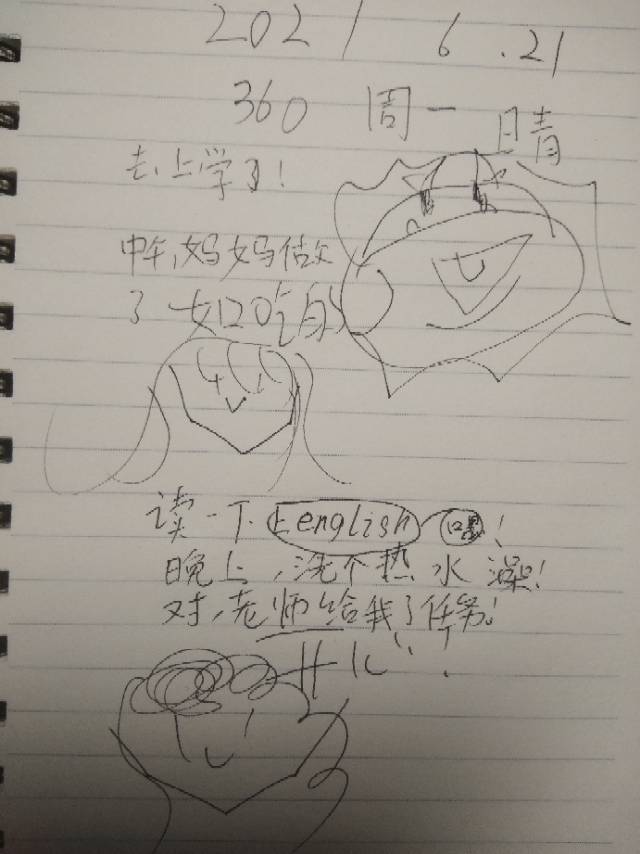 2021 6.21
360 周一 日青
去上学了!
中午,妈妈做
了好吃的
读一下 English 吧!
晚上,洗个热水澡!
对,老师给我了任务!
开心!